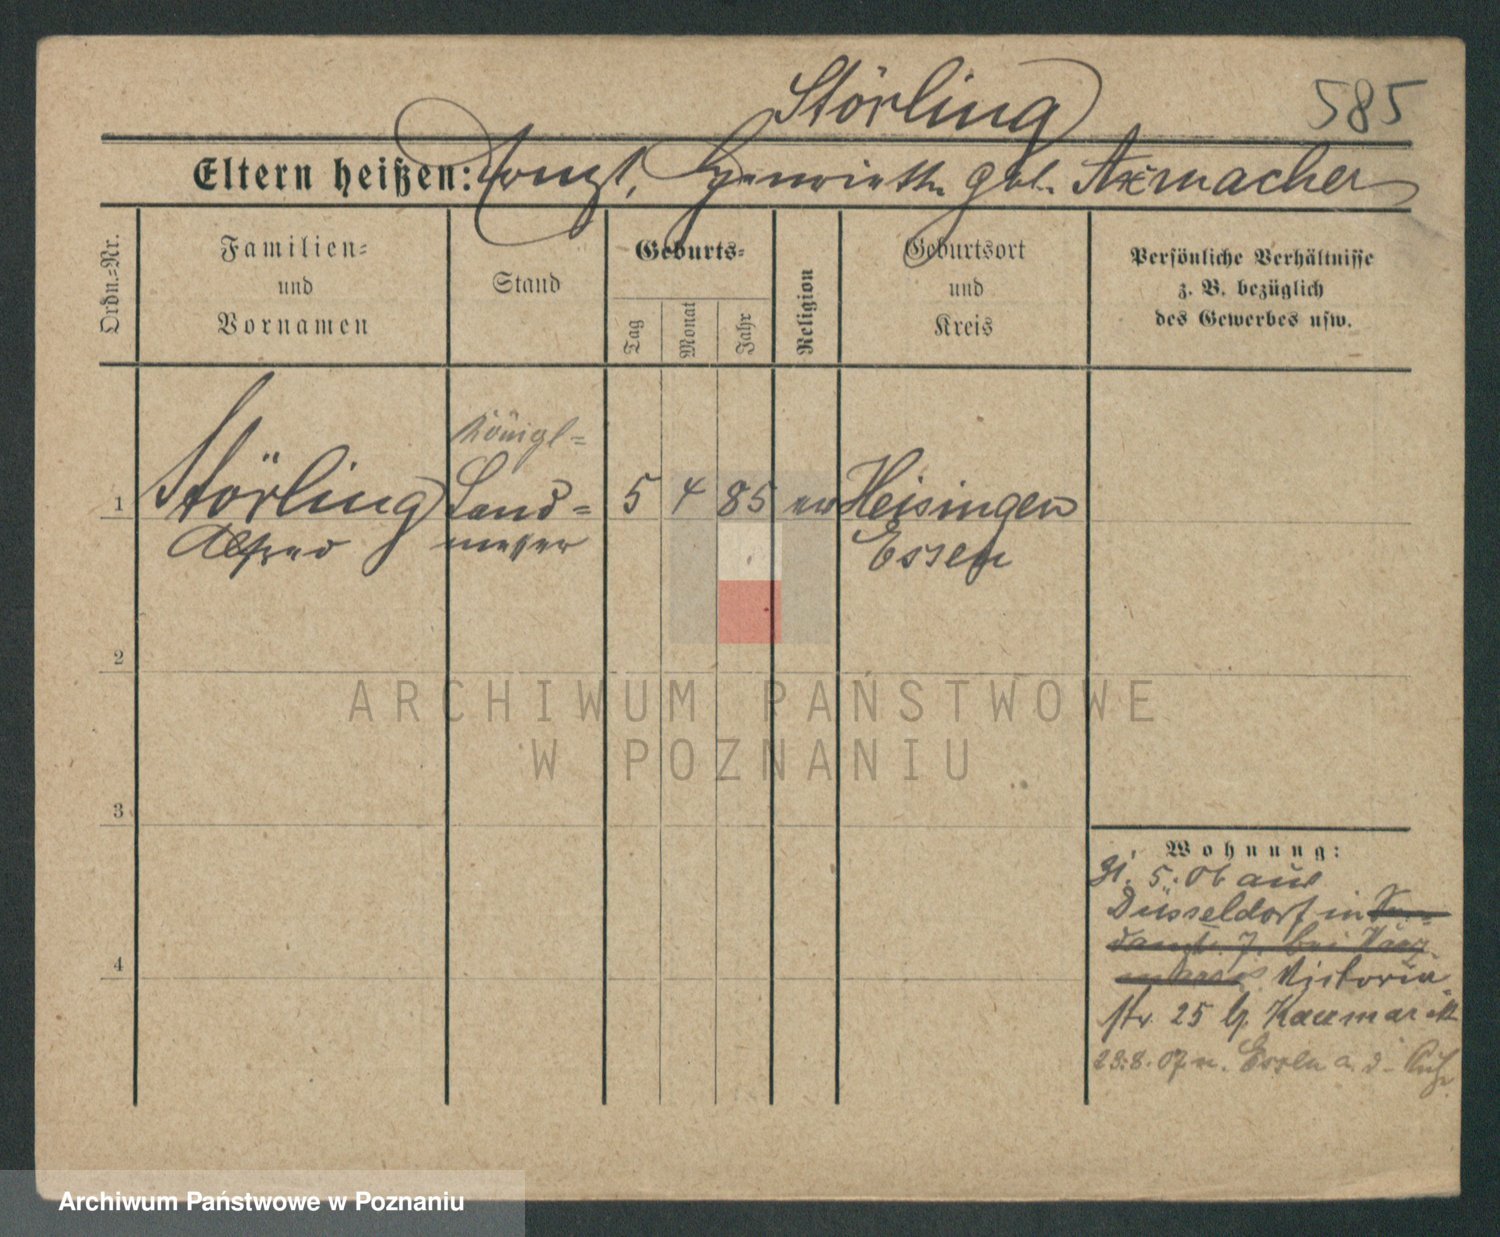 Störling
585
Eltern heißen: Henriette geb.
Ordn.=Nr.
Familien=
und
Vornamen
Stand
Geburts=
Tag
Monat
Jahr
Religion
Geburtsort
und
Kreis
Persönliche Verhältnisse
z. B. bezüglich
des Gewerbes usw.
königl=
1 Störling Land= 5 4 85 ev Heisingen
Alfred messer Essen
2
3
4
Wohnung:
5. 06 aus
Düsseldorf in
bei
Viktoria
str. 25 b.
23.8.07 n. Essen a. d. Ruhr
ARCHIWUM PAŃSTWOWE
W POZNANIU
Archiwum Państwowe w Poznaniu